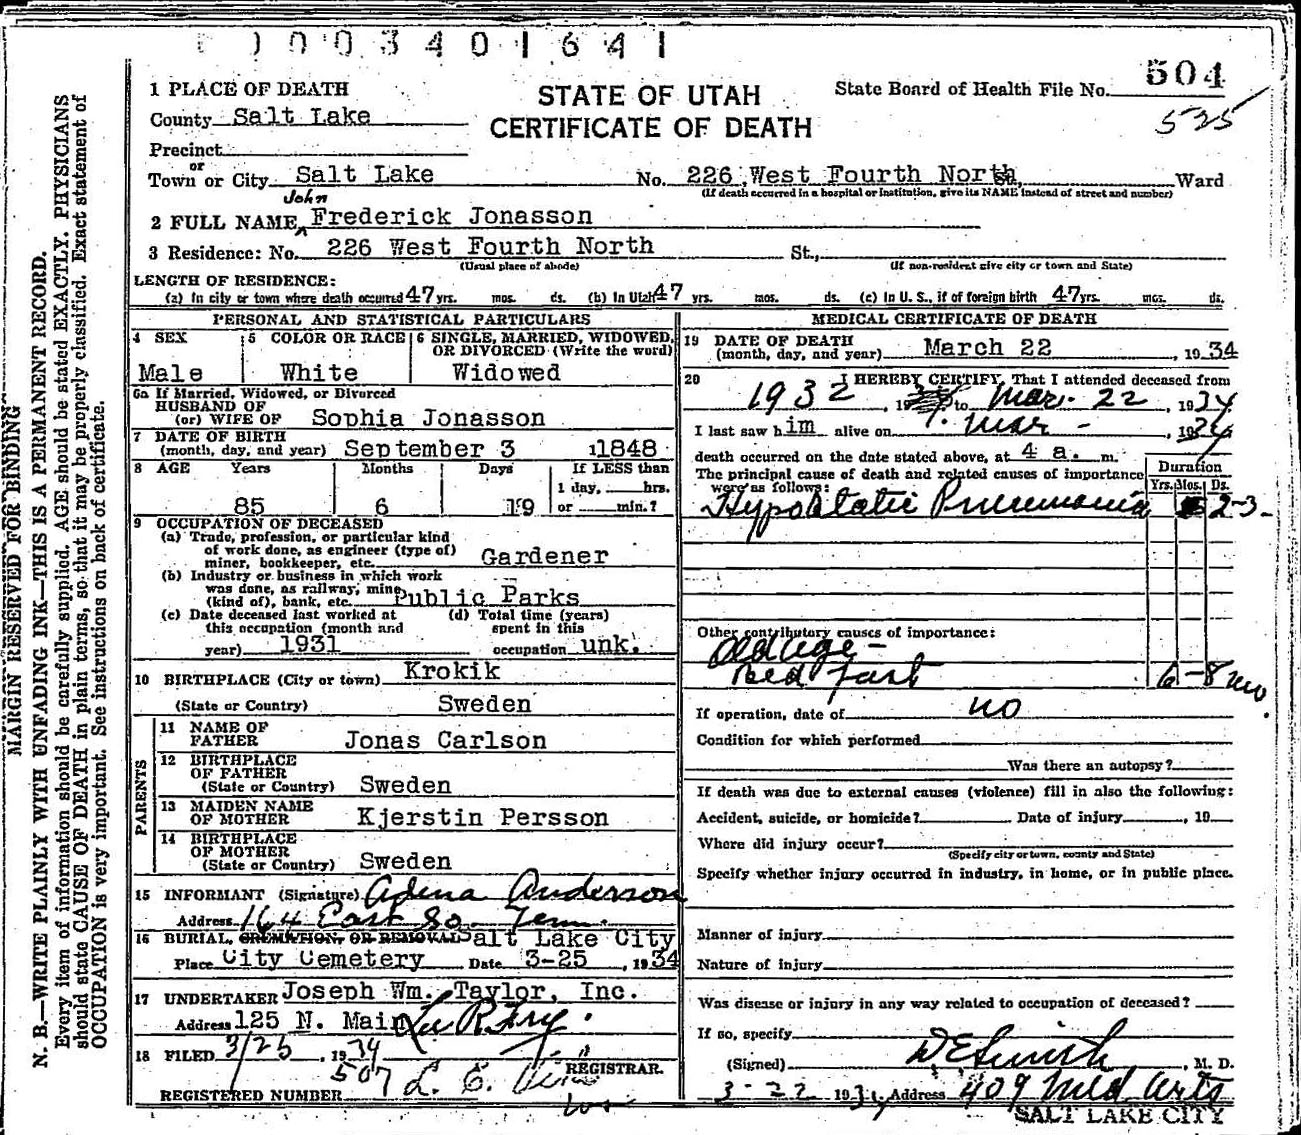 1 0 0 3 4 0 1 6 4 1
504
1 PLACE OF DEATH
STATE OF UTAH
State Board of Health File No.
525
County Salt Lake
CERTIFICATE OF DEATH
Precinct
or
Town or City Salt Lake No. 226 West Fourth North St., Ward
(If death occurred in a hospital or institution, give its NAME instead of street and number)
John
2 FULL NAME Frederick Jonasson
3 Residence: No. 226 West Fourth North St.,
(Usual place of abode) (If non-resident give city or town and State)
LENGTH OF RESIDENCE:
(a) In city or town where death occurred 47 yrs. mos. ds. (b) In Utah 47 yrs. mos. ds. (c) In U. S., if of foreign birth 47 yrs. mos. ds.
PERSONAL AND STATISTICAL PARTICULARS
4 SEX 5 COLOR OR RACE 6 SINGLE, MARRIED, WIDOWED,
OR DIVORCED (Write the word)
Male White Widowed
6a If Married, Widowed, or Divorced
HUSBAND OF
(or) WIFE OF Sophia Jonasson
7 DATE OF BIRTH
(month, day, and year) September 3 1848
8 AGE Years Months Days If LESS than
1 day, hrs.
85 6 19 or min.?
9 OCCUPATION OF DECEASED
(a) Trade, profession, or particular kind
of work done, as engineer (type of)
miner, bookkeeper, etc. Gardener
(b) Industry or business in which work
was done, as railway, mine
(kind of), bank, etc. Public Parks
(c) Date deceased last worked at (d) Total time (years)
this occupation (month and spent in this
year) 1931 occupation unk.
10 BIRTHPLACE (City or town) Krokik
(State or Country) Sweden
PARENTS
11 NAME OF
FATHER Jonas Carlson
12 BIRTHPLACE
OF FATHER
(State or Country) Sweden
13 MAIDEN NAME
OF MOTHER Kjerstin Persson
14 BIRTHPLACE
OF MOTHER
(State or Country) Sweden
15 INFORMANT (Signature) Adena Anderson
Address 164 East So. Tem.
16 BURIAL, CREMATION, OR REMOVAL Salt Lake City
Place City Cemetery Date 3-25, 1934
17 UNDERTAKER Joseph Wm. Taylor, Inc.
Address 125 N. Main
18 FILED 3/25, 1934
REGISTRAR.
REGISTERED NUMBER 507
MEDICAL CERTIFICATE OF DEATH
19 DATE OF DEATH
(month, day, and year) March 22, 1934
20 I HEREBY CERTIFY, That I attended deceased from
1932, 19 to Mar. 22, 1934
I last saw him alive on Mar -, 1934
death occurred on the date stated above, at 4 a. m.
The principal cause of death and related causes of importance
were as follows:
Duration
Yrs. Mos. Ds.
Hypostatic Pneumonia 2-3-
Other contributory causes of importance:
Old age -
Bed fast 6-8 mo.
If operation, date of no
Condition for which performed
Was there an autopsy?
If death was due to external causes (violence) fill in also the following:
Accident, suicide, or homicide? Date of injury, 19
Where did injury occur?
(Specify city or town, county and State)
Specify whether injury occurred in industry, in home, or in public place.
Manner of injury
Nature of injury
Was disease or injury in any way related to occupation of deceased?
If so, specify
(Signed) , M. D.
3-22 1934 Address 409 Med Arts
SALT LAKE CITY
MARGIN RESERVED FOR BINDING
N. B.—WRITE PLAINLY WITH UNFADING INK—THIS IS A PERMANENT RECORD.
Every item of information should be carefully supplied. AGE should be stated EXACTLY. PHYSICIANS
should state CAUSE OF DEATH in plain terms, so that it may be properly classified. Exact statement of
OCCUPATION is very important. See instructions on back of certificate.